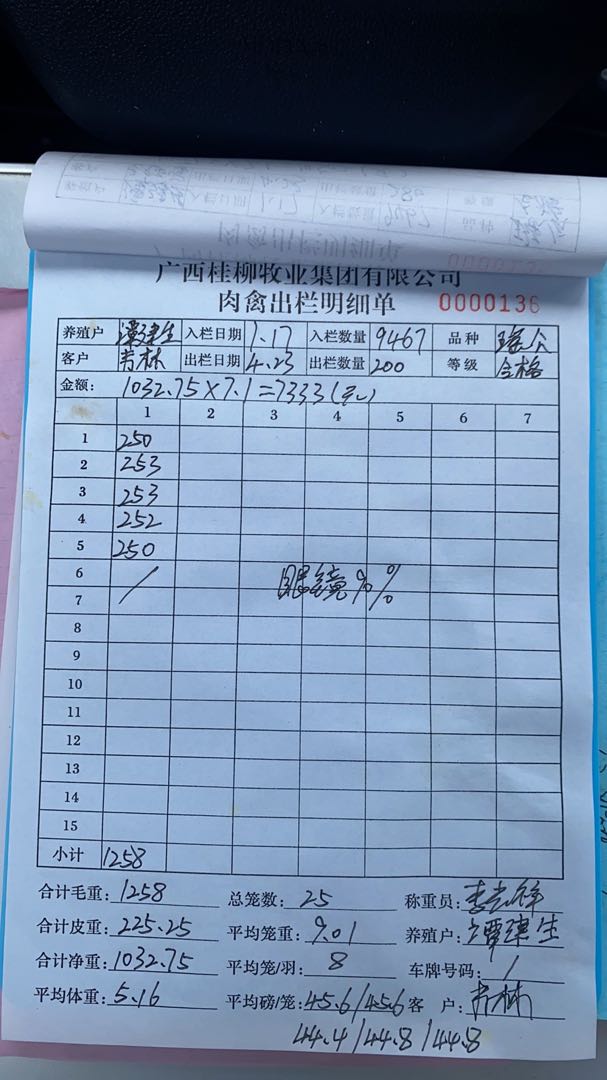 广西桂柳牧业集团有限公司
肉禽出栏明细单 0000136
养殖户 谭建生 入栏日期 1.17 入栏数量 9467 品种
客户 韦林 出栏日期 4.23 出栏数量 200 等级 合格
金额: 1032.75×7.1=7333(元)
1 2 3 4 5 6 7
1 250
2 253
3 253
4 252
5 250
6 /
7 眼镜 9%
8
9
10
11
12
13
14
15
小计 1258
合计毛重: 1258 总笼数: 25 称重员:
合计皮重: 225.25 平均笼重: 9.01 养殖户: 谭建生
合计净重: 1032.75 平均笼/羽: 8 车牌号码: /
平均体重: 5.16 平均磅/笼: 45.6/45.6 客 户: 韦林
44.4/44.8/44.8